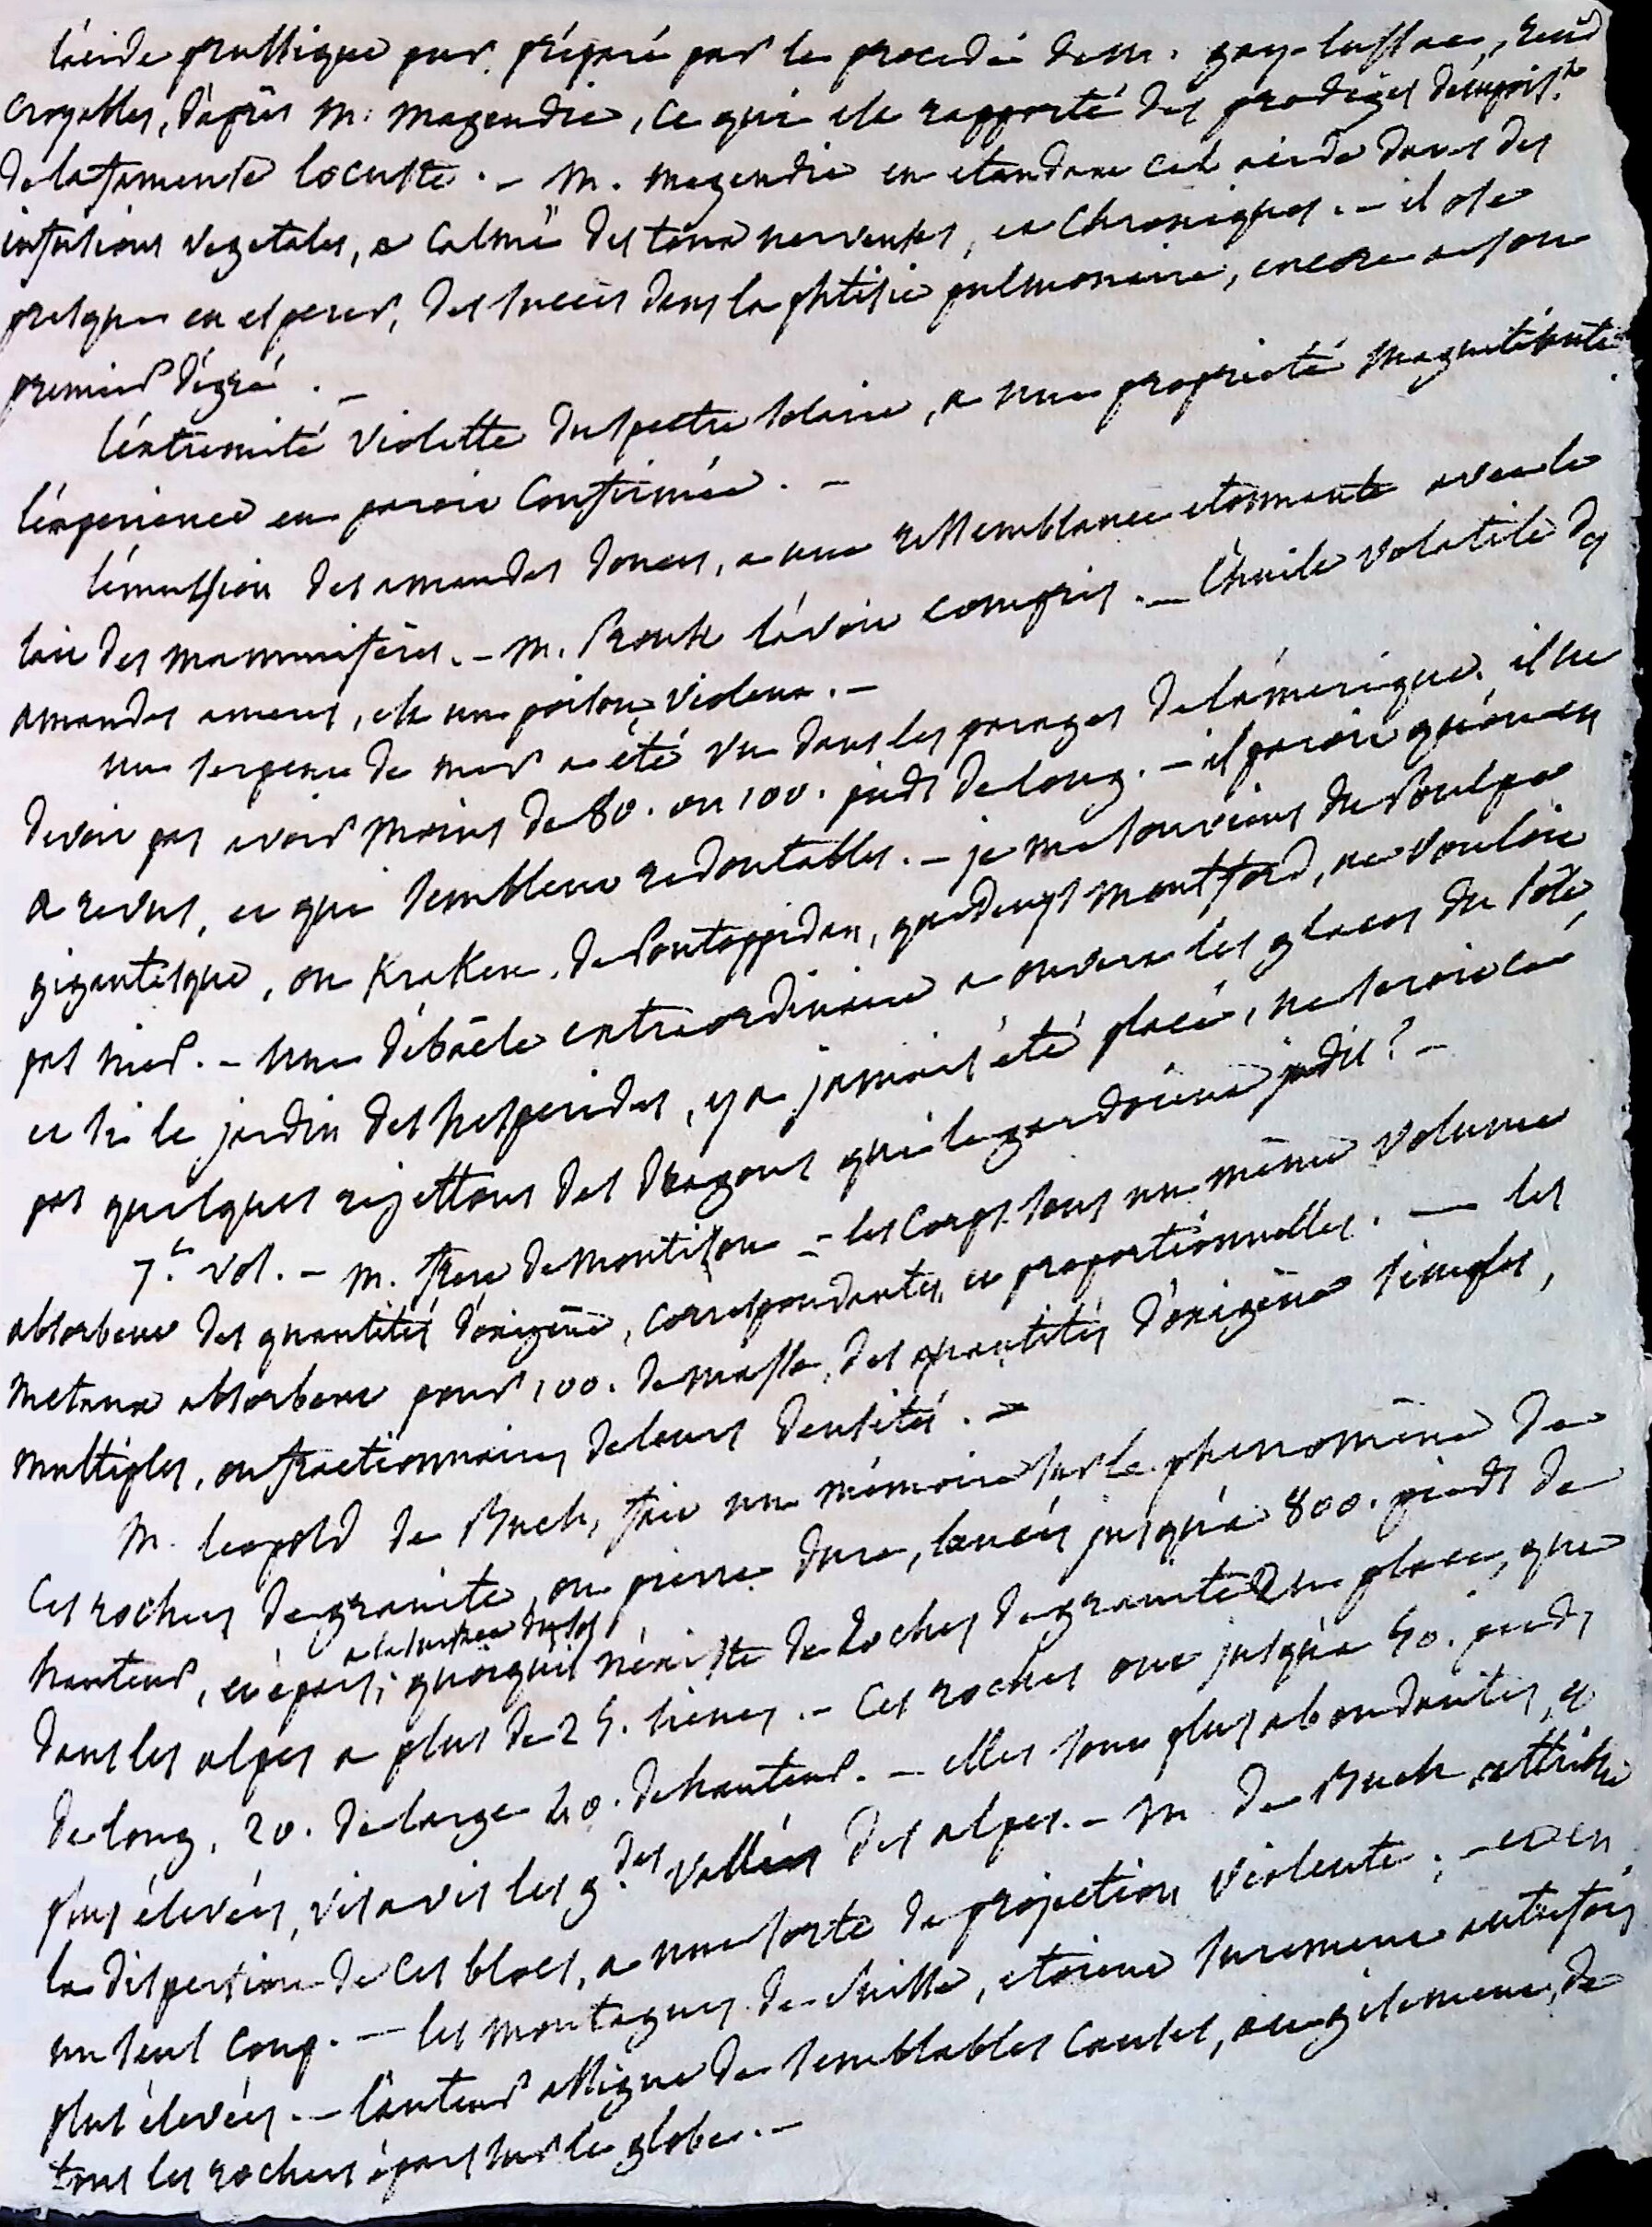 l'acide prussique pur, préparé par le procedé de M. gay-lussac, rend
croyables, d'après M. Magendie, ce qui est rapporté des prodiges d'empois.t
de la fameuse locuste. – M. magendie en etendant cet acide dans des
infusions vegetales, a calmé des toux nerveuses, et chroniques. – il ose
presque en esperer, des succès dans la phtisie pulmonaire, encore a son
premier dégré. –
l'éxtremité violette du spectre solaire, a une proprieté magnétisante
l'éxperience en paroit confirmée. –
l'émulsion des amandes douces, a une ressemblance etonnante avec le
lait des mammifères. – M. Proust l'avoit compris. – l'huile volatile des
amandes ameres, est un poison violent. –
un serpent de mer a été vu dans les parages de l'amerique. il ne
devoit pas avoir moins de 80. ou 100. pieds de long. – il paroit qu'on en
a revus, et qui semblent redoutables. – je me souviens du Poulpe
gigantesque, ou Kraken, de Pontoppidan, que denys montford, ne vouloit
pas nier. – une débacle extraordinaire a ouvert les glaces du pole,
et si le jardin des hesperides, y a jamais été placé, ne seroit ce
pas quelques rejettons des dragons qui le gardoient jadis ? –
7.e vol. – M. frere de montison – les corps sous un même volume
absorbent des quantités d'oxigène, correspondantes, et proportionnelles. — les
metaux absorbent pour 100. de masse, des quantités d'oxigène simples,
multiples, ou fractionnaires de leurs densités. –
M. leopold de Buch, fait un mémoire sur le phenomène de
ces rochers de granite, ou pierre dure, lancés jusqu'à 800. pieds de
hauteur, et épars, a la surface du sol, quoiqu'il n'existe de roches de granite en place, que
dans les alpes a plus de 25. lieues. – ces roches ont jusqu'à 50. pieds
de long, 20. de large 40. de hauteur. – elles sont plus abondantes, et
plus élevées, vis a vis les g.des vallées des alpes. – M. de Buch attribue
la dispersion de ces blocs, a une sorte de projection violente, – et en
un seul coup. — les montagnes de suisse, etoient surement autrefois
plus élevées. – l'auteur assigne de semblables causes, au gisement, de
tous les rochers épars sur le globe. –